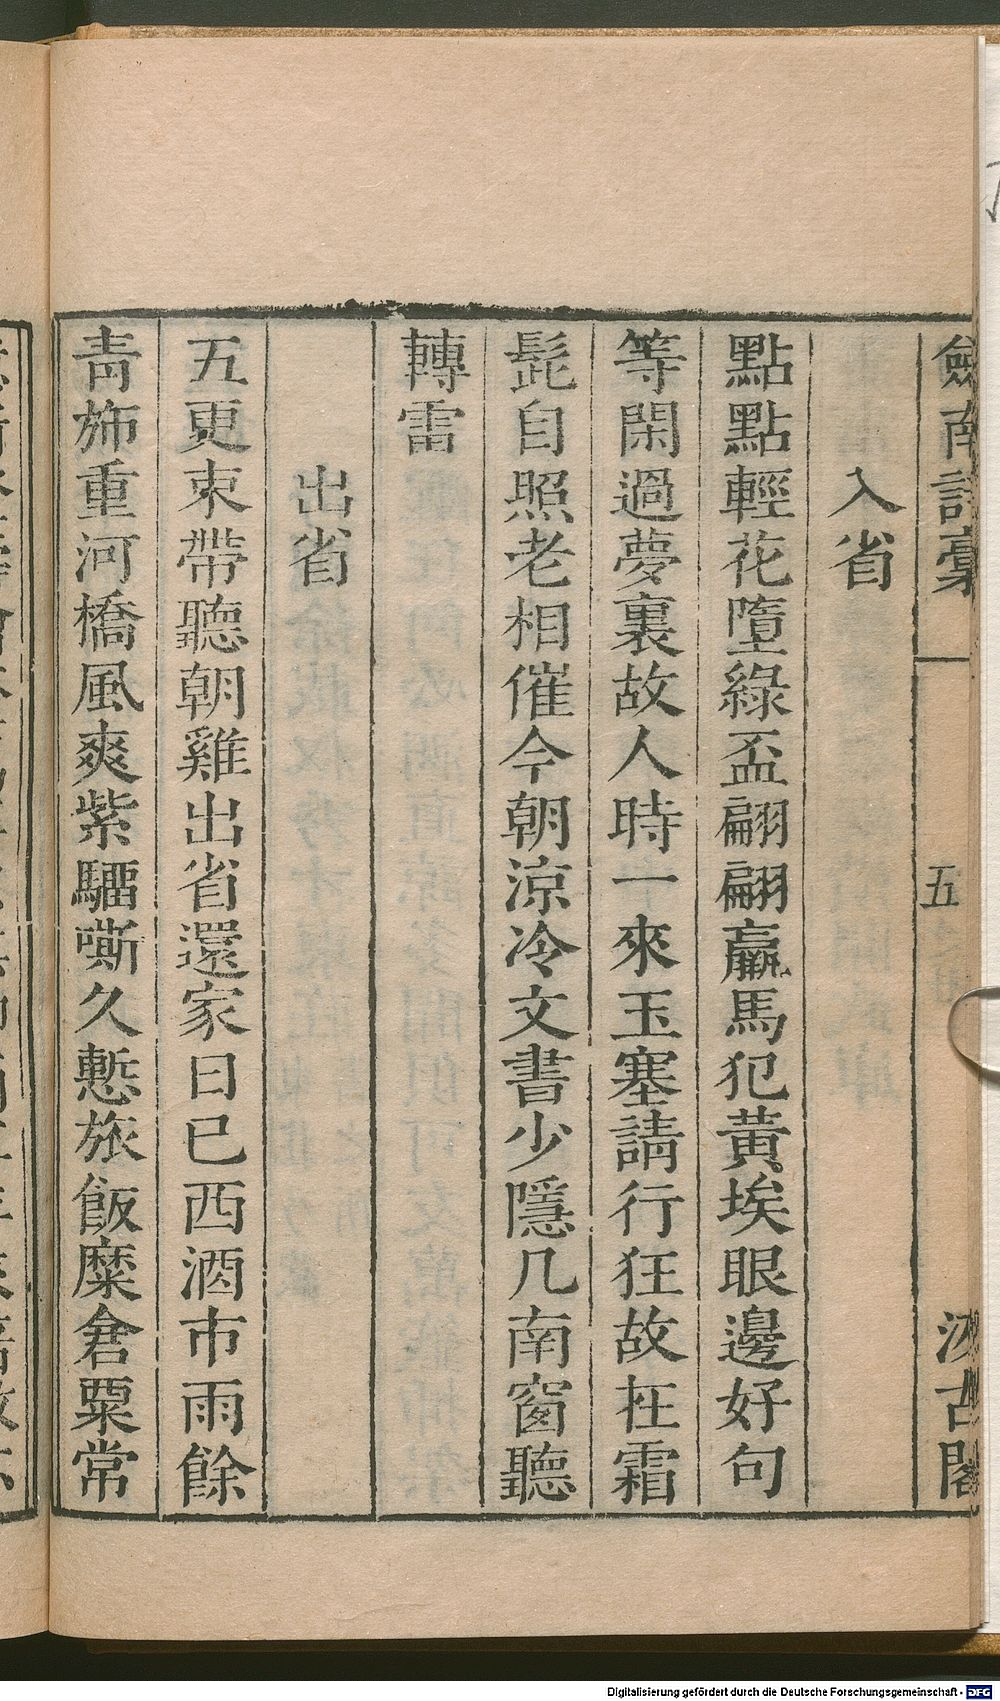 劒南詩稾 五 汲古閣
入省
點點輕花墮綠盃翩翩羸馬犯黃埃眼邊好句
等閑過夢裏故人時一來玉塞請行狂故在霜
髭自照老相催今朝涼冷文書少隱几南窗聽
轉雷
出省
五更束帶聽朝雞出省還家日已西酒市雨餘
靑斾重河橋風爽紫騮嘶久慙旅飯糜倉粟常
Digitalisierung gefördert durch die Deutsche Forschungsgemeinschaft - DFG